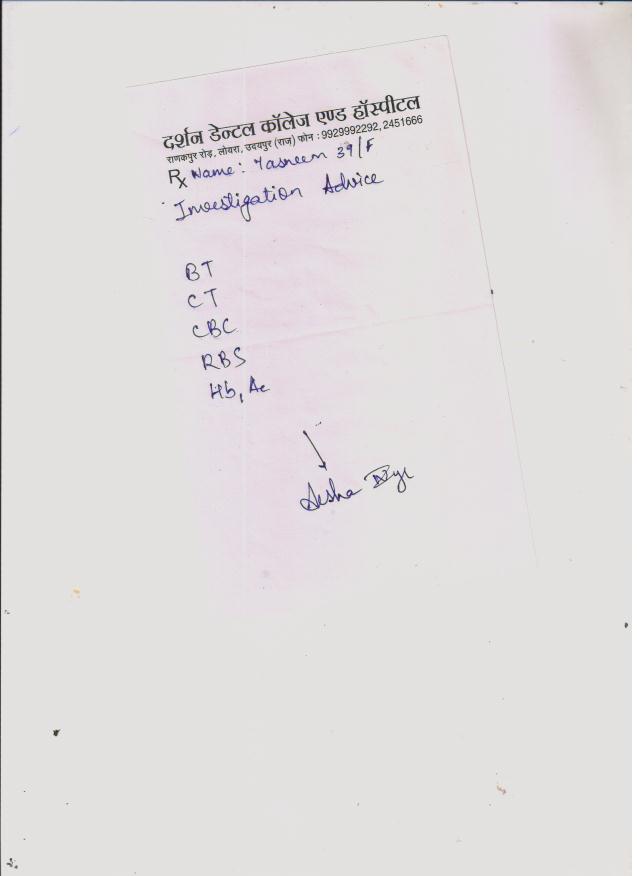 दर्शन डेन्टल कॉलेज एण्ड हॉस्पीटल
राणकपुर रोड़, लोयरा, उदयपुर (राज) फोन : 9929992292, 2451666
Rx Name: Tasneem 39/F
Investigation Advice
BT
CT
CBC
RBS
Hb, Ac